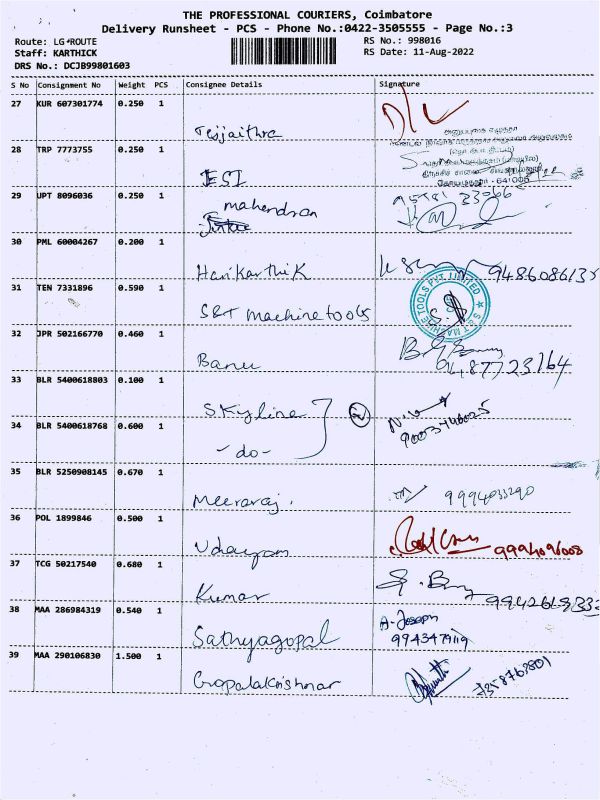 THE PROFESSIONAL COURIERS, Coimbatore
Delivery Runsheet - PCS - Phone No.:0422-3505555 - Page No.:3
Route: LG ROUTE
RS No.: 998016
Staff: KARTHICK
RS Date: 11-Aug-2022
DRS No.: DCJB99801603
S No Consignment Number Weight PCS Consignee Details Signature
27 KUR 607301774 0.250 1
D/L
28 TRP 7773755 0.250 1
ESI
29 UPT 8096036 0.250 1
mahendran
30 PML 60004267 0.200 1
Harikarthik
31 TEN 7331896 0.590 1
S&T machine tools
S&T MACHINE TOOLS PVT. LIMITED
32 JPR 502166770 0.460 1
Banu
9487723164
33 BLR 5400618803 0.100 1
Skyline
2
34 BLR 5400618768 0.600 1
-do-
9003746025
35 BLR 5250908145 0.670 1
Meeraraj.
9994033290
36 POL 1899846 0.500 1
Udhayam
9994096008
37 TCG 50217540 0.680 1
Kumar
38 MAA 286984319 0.540 1
Sathyagopal
A. Joseph
39 MAA 290106830 1.500 1
Gopalakrishnar
7358763801